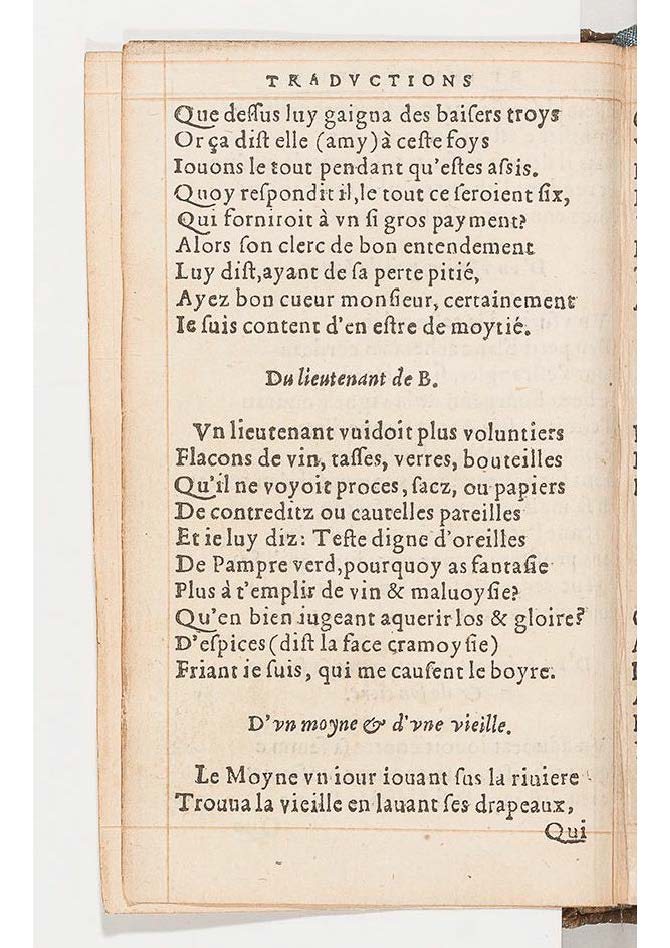 TRADVCTIONS
Que deſſus luy gaigna des baiſers troys
Or ça diſt elle (amy) à ceſte foys
Iouons le tout pendant qu'eſtes aſsis.
Quoy reſpondit il, le tout ce ſeroient ſix,
Qui forniroit à vn ſi gros payment?
Alors ſon clerc de bon entendement
Luy diſt, ayant de ſa perte pitié,
Ayez bon cueur monſieur, certainement
Ie ſuis content d'en eſtre de moytié.
Du lieutenant de B.
Vn lieutenant vuidoit plus voluntiers
Flacons de vin, taſſes, verres, bouteilles
Qu'il ne voyoit proces, ſacz, ou papiers
De contreditz ou cautelles pareilles
Et ie luy diz: Teſte digne d'oreilles
De Pampre verd, pourquoy as fantaſie
Plus à t'emplir de vin & maluoyſie?
Qu'en bien iugeant aquerir los & gloire?
D'eſpices (diſt la face cramoyſie)
Friant ie ſuis, qui me cauſent le boyre.
D'vn moyne & d'vne vieille.
Le Moyne vn iour iouant ſus la riuiere
Trouua la vieille en lauant ſes drapeaux,
Qui